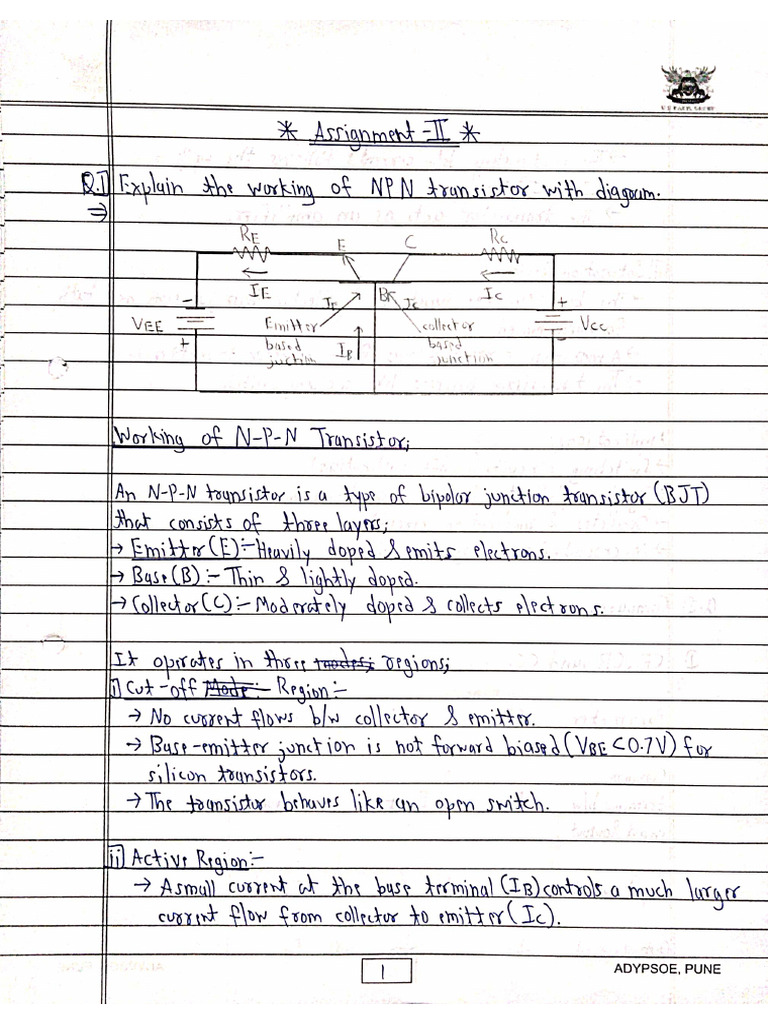 * Assignment-II *
Q.I Explain the working of NPN transistor with diagram.
⇒
RE E C Rc
IE IE B Ic Ic
VEE Emitter based junction IB collector based junction Vcc
- + + -
Working of N-P-N Transistor;
An N-P-N transistor is a type of bipolar junction transistor (BJT)
that consists of three layers;
→ Emitter(E):- Heavily doped & emits electrons.
→ Base(B):- Thin & lightly doped.
→ Collector(C):- Moderately doped & collects electrons.
It operates in three modes; regions;
i) Cut-off Mode:- Region:-
→ No current flows b/w collector & emitter.
→ Base-emitter junction is not forward biased (VBE<0.7V) for
silicon transistors.
→ The transistor behaves like an open switch.
ii) Active Region:-
→ A small current at the base terminal (IB) controls a much larger
current flow from collector to emitter (Ic).
1
ADYPSOE, PUNE